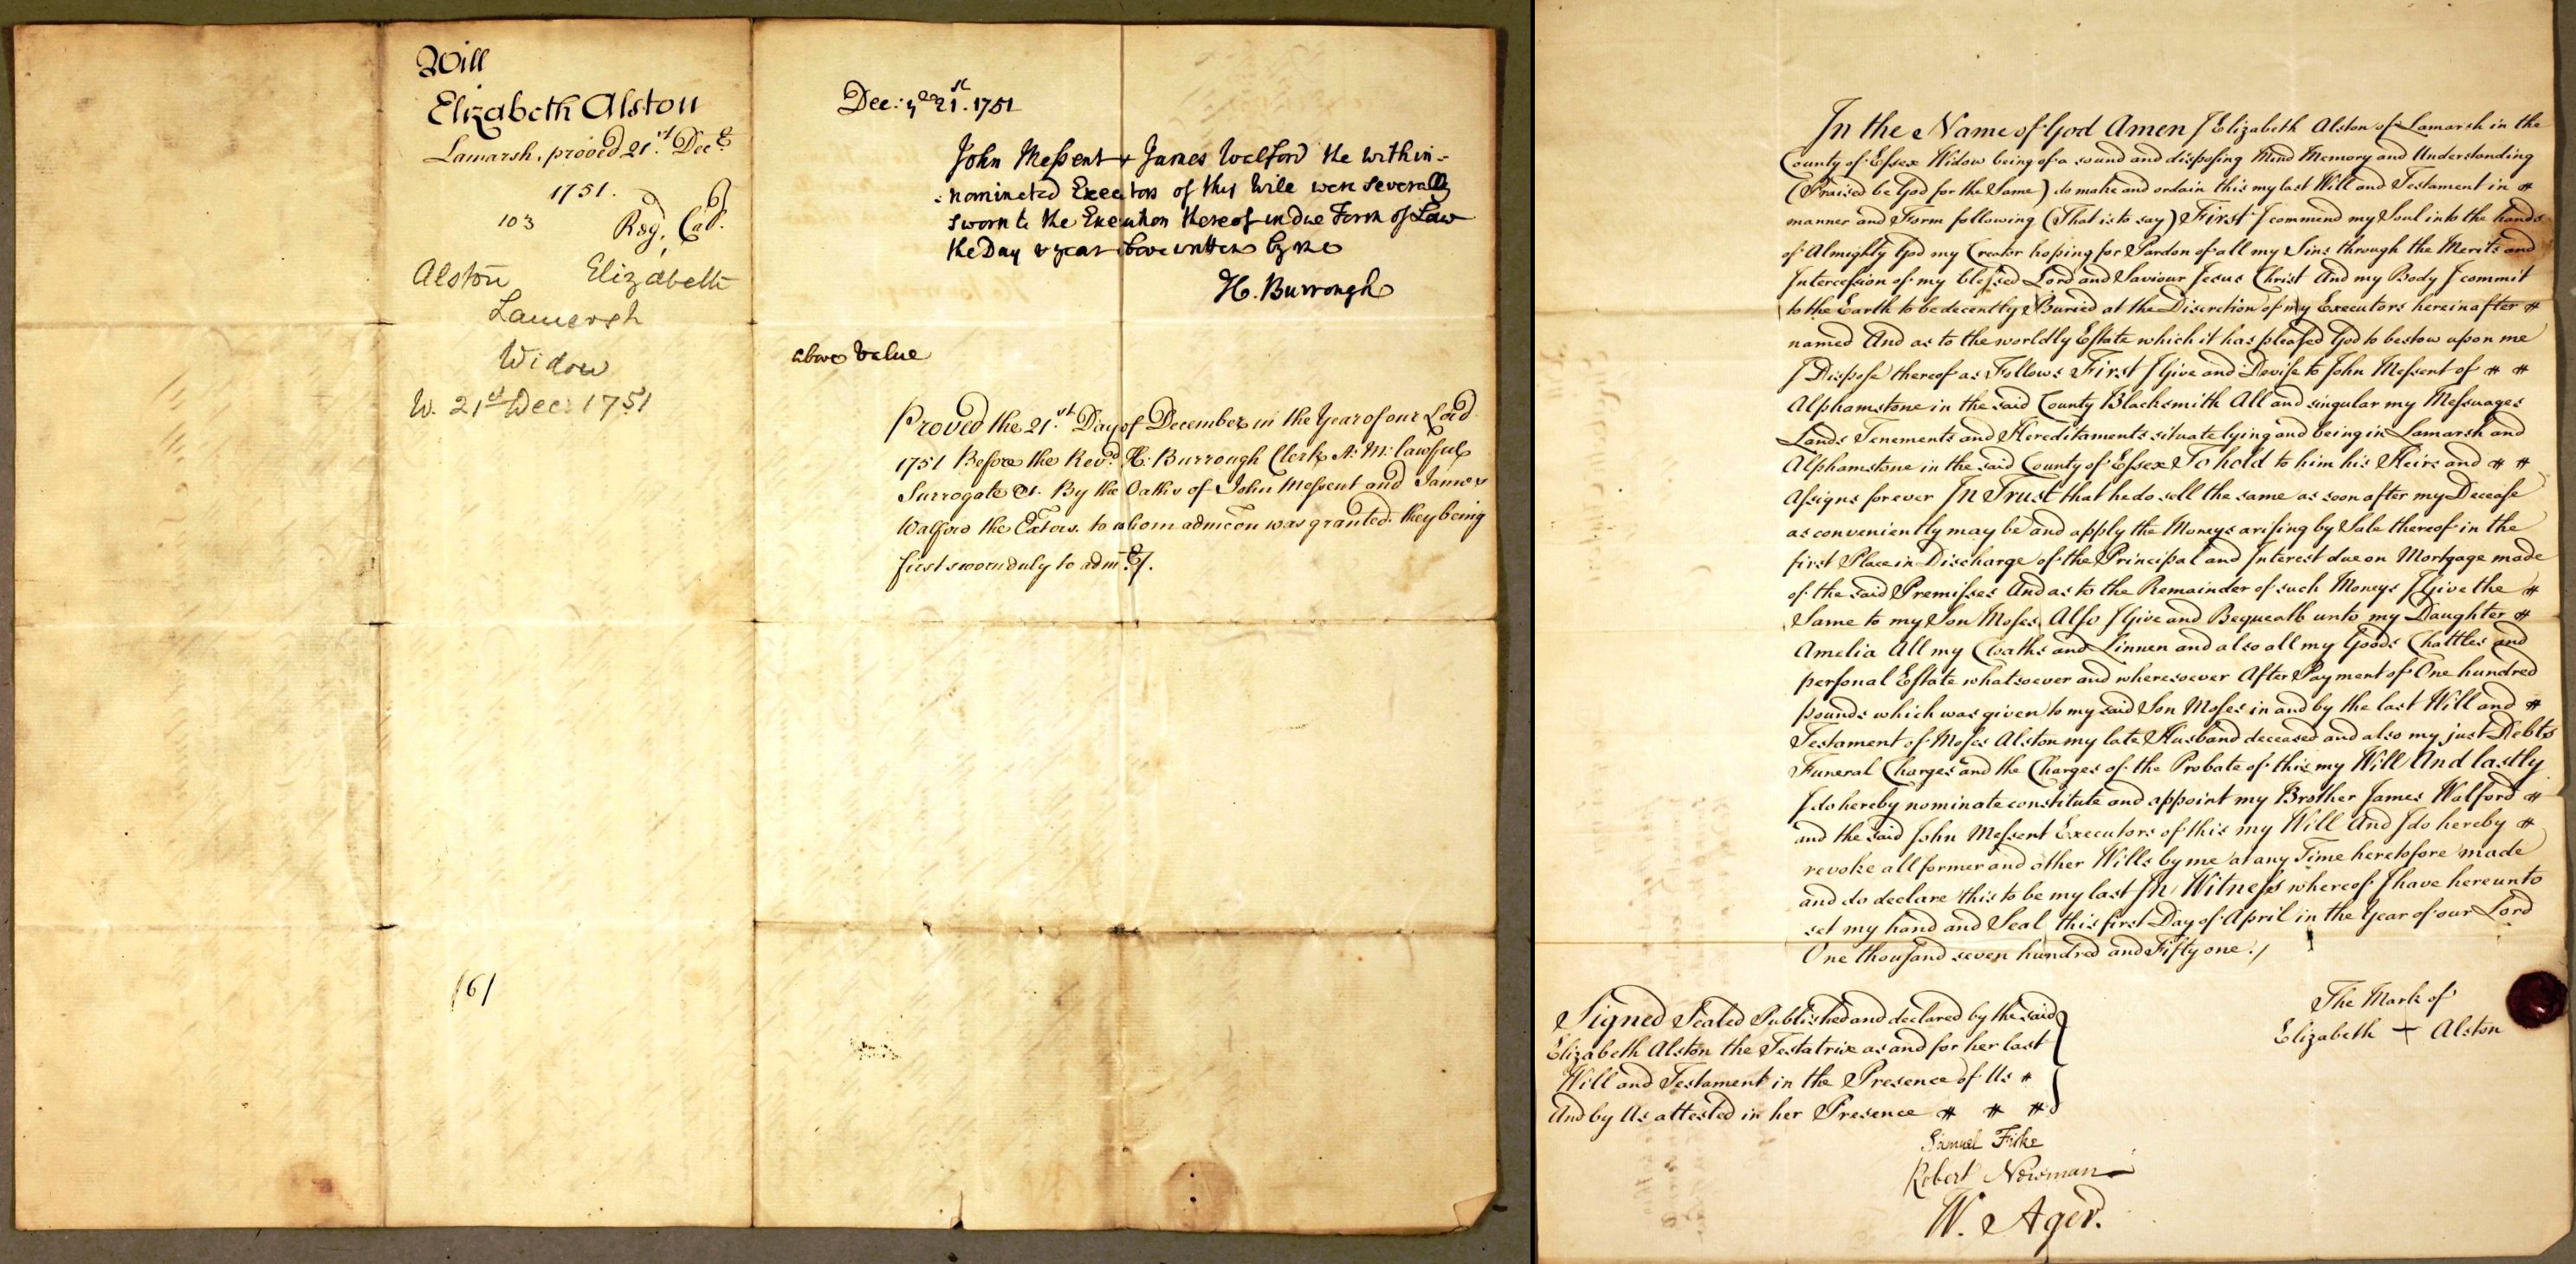 Will
Elizabeth Alston
Lamarsh, proved 21.st Dec.r
1751.
103
Reg.
Alston Elizabeth
Lamersh
Widow
W. 21st Dec: 1751
/6/
Dec: ye 21st. 1751
John Messent & James Walford the within-
-nominated Executors of this Will were Severally
sworn to the Execution thereof in due Form of Law
the Day & year above written by me
H. Burrough
above value
Proved the 21.st Day of December in the Year of our Lord
1751 Before the Revd. H. Burrough Clerk A: M: lawfull
Surrogate &c. By the Oaths of John Messent and James
Walford the Exors. to whom admcon was granted. they being
first sworn duly to admr. &c.
In the Name of God Amen I Elizabeth Alston of Lamarsh in the
County of Essex Widow being of a sound and disposing Mind Memory and Understanding
(Praised be God for the Same) do make and ordain this my last Will and Testament in
manner and Form following (That is to say) First I commend my Soul into the hands
of Almighty God my Creator hoping for Pardon of all my Sins through the Merits and
Intercession of my blessed Lord and Saviour Jesus Christ And my Body I commit
to the Earth to be decently Buried at the Discretion of my Executors hereinafter
named And as to the worldly Estate which it has pleased God to bestow upon me
I Dispose thereof as Follows First I Give and Devise to John Messent of
Alphamstone in the said County Blacksmith All and singular my Messuages
Lands Tenements and Hereditaments situate lying and being in Lamarsh and
Alphamstone in the said County of Essex To hold to him his Heirs and
Assigns forever In Trust that he do sell the same as soon after my Decease
as conveniently may be and apply the Moneys arising by Sale thereof in the
first Place in Discharge of the Principal and Interest due on Mortgage made
of the said Premisses And as to the Remainder of such Moneys I Give the
Same to my Son Moses Also I Give and Bequeath unto my Daughter
Amelia All my Cloaths and Linnen and also all my Goods Chattles and
personal Estate whatsoever and wheresoever After Payment of One hundred
pounds which was given to my said Son Moses in and by the last Will and
Testament of Moses Alston my late Husband deceased and also my just Debts
Funeral Charges and the Charges of the Probate of this my Will And lastly
I do hereby nominate constitute and appoint my Brother James Walford
and the said John Messent Executors of this my Will And I do hereby
revoke all former and other Wills by me at any Time heretofore made
and do declare this to be my last In Witness whereof I have hereunto
set my hand and Seal this first Day of April in the Year of our Lord
One thousand seven hundred and Fifty one./
The Mark of
Elizabeth + Alston
Signed Sealed Published and declared by the said
Elizabeth Alston the Testatrix as and for her last
Will and Testament in the Presence of Us
And by Us attested in her Presence
Samuel Fiske
Robert Newman
W. Ager.